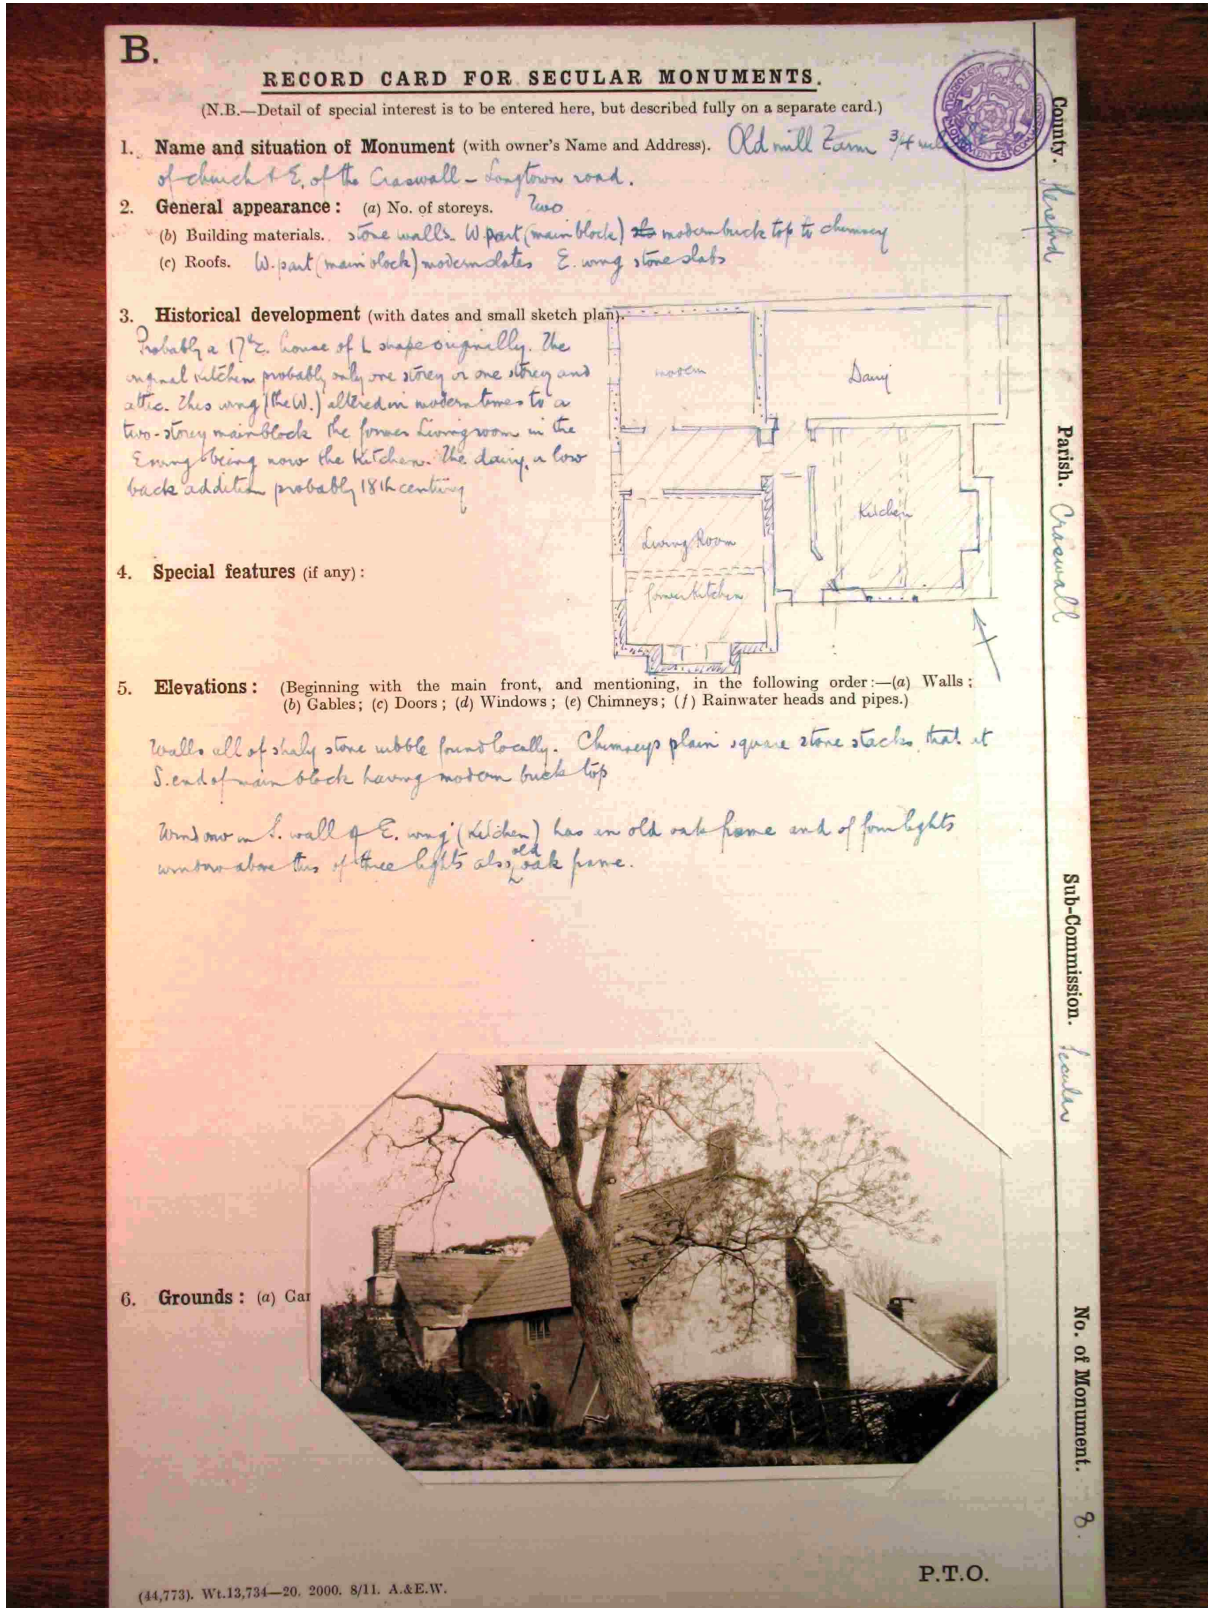 B.
RECORD CARD FOR SECULAR MONUMENTS.
(N.B.—Detail of special interest is to be entered here, but described fully on a separate card.)
1. Name and situation of Monument (with owner's Name and Address). Old mill Farm 3/4
of church & E. of the Craswall – Longtown road.
2. General appearance: (a) No. of storeys. Two
(b) Building materials. stone walls. W. part (main block) modern brick top to chimney
(c) Roofs. W. part (main block) modern slates E. wing stone slabs
3. Historical development (with dates and small sketch plan).
Probably a 17th C. house of L shape originally. The
original kitchen probably only one storey or one storey and
attic. This wing (the W.) altered in modern times to a
two-storey main block the former Living room in the
E wing being now the kitchen. The dairy, a low
back addition probably 18th century
modern
Dairy
Kitchen
Living Room
former kitchen
4. Special features (if any):
5. Elevations: (Beginning with the main front, and mentioning, in the following order:—(a) Walls;
(b) Gables; (c) Doors; (d) Windows; (e) Chimneys; (f) Rainwater heads and pipes.)
Walls all of shaly stone rubble found locally. Chimneys plain square stone stacks, that at
S. end of main block having modern brick top
Window in S. wall of E. wing (kitchen) has an old oak frame and of four lights
window above this of three lights also old oak frame.
6. Grounds: (a) Gar
P.T.O.
(44,773). Wt.13,734—20. 2000. 8/11. A.&E.W.
County. Hereford
Parish. Craswall
Sub-Commission. Secular
No. of Monument. 8.